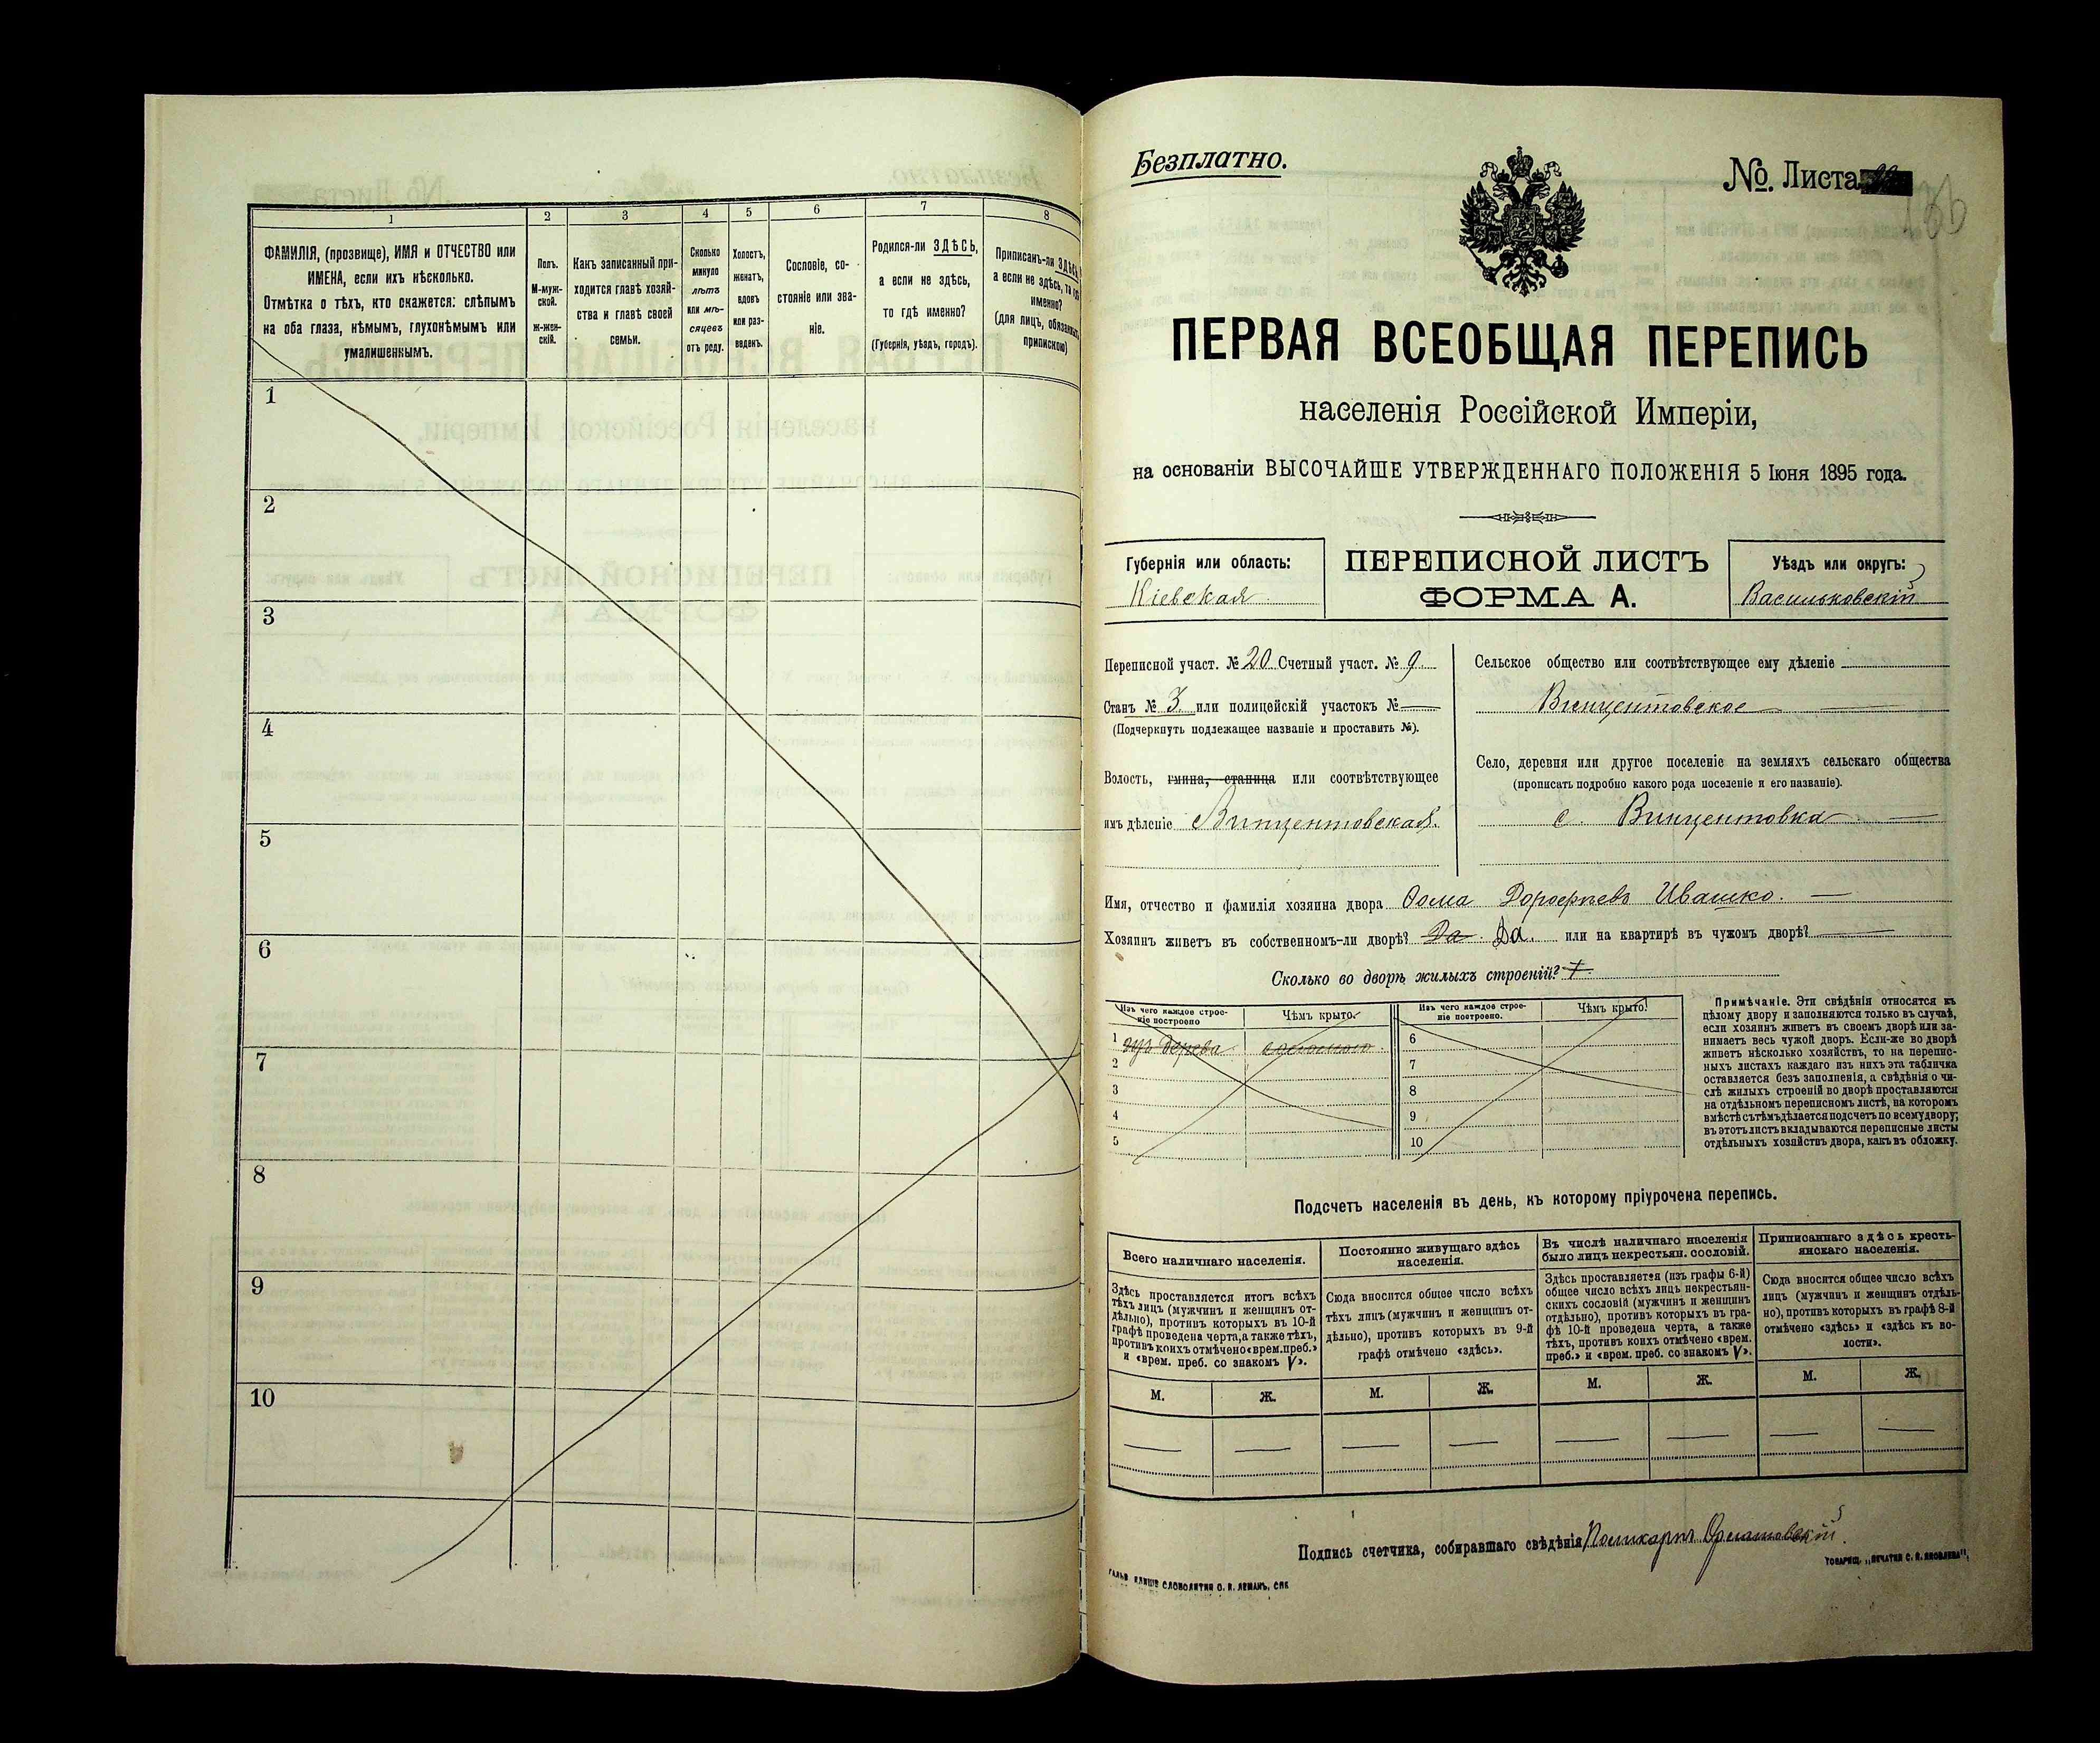 1
2
3
4
5
6
7
8
ФАМИЛІЯ, (прозвище), ИМЯ и ОТЧЕСТВО или
ИМЕНА, если ихъ нѣсколько.
Отмѣтка о тѣхъ, кто скажется: слѣпымъ
на оба глаза, нѣмымъ, глухонѣмымъ или
умалишеннымъ.
Полъ.
М-муж-
ской.
ж-жен-
скій.
Какъ записанный при-
ходится главѣ хозяй-
ства и главѣ своей
семьи.
Сколько
минуло
лѣтъ
или мѣ-
сяцевъ
отъ роду.
Холостъ,
женатъ,
вдовъ
или раз-
веденъ.
Сословіе, со-
стояніе или зва-
ніе.
Родился-ли ЗДѢСЬ,
а если не здѣсь,
то гдѣ именно?
(Губернія, уѣздъ, городъ).
Приписанъ-ли ЗДѢСЬ,
а если не здѣсь, то гдѣ
именно?
(для лицъ, обязанныхъ
припискою)
1
2
3
4
5
6
7
8
9
10
Безплатно.
№ Листа
136
ПЕРВАЯ ВСЕОБЩАЯ ПЕРЕПИСЬ
населенія Россійской Имперіи,
на основаніи ВЫСОЧАЙШЕ УТВЕРЖДЕННАГО ПОЛОЖЕНІЯ 5 Іюня 1895 года.
Губернія или область:
Кіевская
ПЕРЕПИСНОЙ ЛИСТЪ
ФОРМА А.
Уѣздъ или округъ:
Васильковскій
Переписной участ. № 20 Счетный участ. № 9.
Станъ № 3 или полицейскій участокъ №
(Подчеркнуть подлежащее названіе и проставить №).
Волость, гмина, станица или соотвѣтствующее
имъ дѣленіе Винцентовская.
Сельское общество или соотвѣтствующее ему дѣленіе
Винцентовское
Село, деревня или другое поселеніе на земляхъ сельскаго общества
(прописать подробно какого рода поселеніе и его названіе).
с. Винцентовка
Имя, отчество и фамилія хозяина двора Ѳома Дорофѣевъ Ивашко.
Хозяинъ живетъ въ собственномъ-ли дворѣ? Да Да. или на квартирѣ въ чужомъ дворѣ?
Сколько во дворѣ жилыхъ строеній?
Изъ чего каждое строе-
ніе построено
Чѣмъ крыто.
Изъ чего каждое строе-
ніе построено.
Чѣмъ крыто.
1 изъ дерева соломою
2
3
4
5
6
7
8
9
10
Примѣчаніе. Эти свѣдѣнія относятся къ
цѣлому двору и заполняются только въ случаѣ,
если хозяинъ живетъ въ своемъ дворѣ или за-
нимаетъ весь чужой дворъ. Если-же во дворѣ
живетъ нѣсколько хозяйствъ, то на перепис-
ныхъ листахъ каждаго изъ нихъ эта табличка
оставляется безъ заполненія, а свѣдѣнія о чи-
слѣ жилыхъ строеній во дворѣ проставляются
на отдѣльномъ переписномъ листѣ, на которомъ
вмѣстѣ съ тѣмъ дѣлается подсчетъ по всему двору;
въ этотъ листъ вкладываются переписные листы
отдѣльныхъ хозяйствъ двора, какъ въ обложку.
Подсчетъ населенія въ день, къ которому пріурочена перепись.
Всего наличнаго населенія.
Здѣсь проставляется итогъ всѣхъ
тѣхъ лицъ (мужчинъ и женщинъ от-
дѣльно), противъ которыхъ въ 10-й
графѣ проведена черта, а также тѣхъ,
противъ коихъ отмѣчено «врем. преб.»
и «врем. преб. со знакомъ V».
Постоянно живущаго здѣсь
населенія.
Сюда вносится общее число всѣхъ
тѣхъ лицъ (мужчинъ и женщинъ от-
дѣльно), противъ которыхъ въ 9-й
графѣ отмѣчено «здѣсь».
Въ числѣ наличнаго населенія
было лицъ некрестьян. сословій.
Здѣсь проставляется (изъ графы 6-й)
общее число всѣхъ лицъ некрестьян-
скихъ сословій (мужчинъ и женщинъ
отдѣльно), противъ которыхъ въ гра-
фѣ 10-й проведена черта, а также
тѣхъ, противъ коихъ отмѣчено «врем.
преб.» и «врем. преб. со знакомъ V».
Приписаннаго здѣсь кресть-
янскаго населенія.
Сюда вносится общее число всѣхъ
лицъ (мужчинъ и женщинъ отдѣль-
но), противъ которыхъ въ графѣ 8-й
отмѣчено «здѣсь» и «здѣсь къ во-
лости».
М. Ж. М. Ж. М. Ж. М. Ж.
Подпись счетчика, собиравшаго свѣдѣнія Поликарпъ
СЛОВОЛИТНИ О. И. ЛЕМАНЪ, СПБ
ТОВАРИЩ. „ПЕЧАТНИ С. П. ЯКОВЛЕВА“.